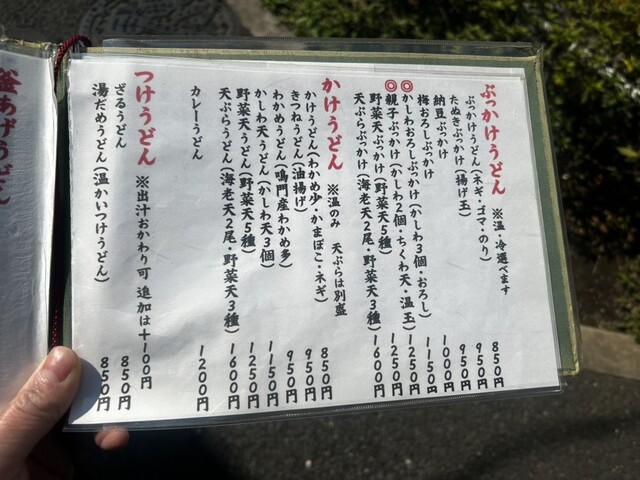 ぶっかけうどん ※温・冷選べます
ぶっかけうどん(ネギ・ゴマ・のり) 850円
たぬきぶっかけ(揚げ玉) 950円
納豆ぶっかけ 950円
梅おろしぶっかけ 1000円
◎かしわおろしぶっかけ(かしわ3個・おろし) 1150円
◎親子ぶっかけ(かしわ2個・ちくわ天・温玉) 1250円
野菜天ぶっかけ(野菜天5種) 1250円
天ぷらぶっかけ(海老天2尾・野菜天3種) 1600円
かけうどん ※温のみ 天ぷらは別盛
かけうどん(わかめ少・かまぼこ・ネギ) 850円
きつねうどん(油揚げ) 950円
わかめうどん(鳴門産わかめ多) 950円
かしわ天うどん(かしわ天3個) 1150円
野菜天うどん(野菜天5種) 1250円
天ぷらうどん(海老天2尾・野菜天3種) 1600円
カレーうどん 1200円
つけうどん ※出汁おかわり可 追加は+100円
ざるうどん 850円
湯だめうどん(温かいつけうどん) 850円
釜あげうどん